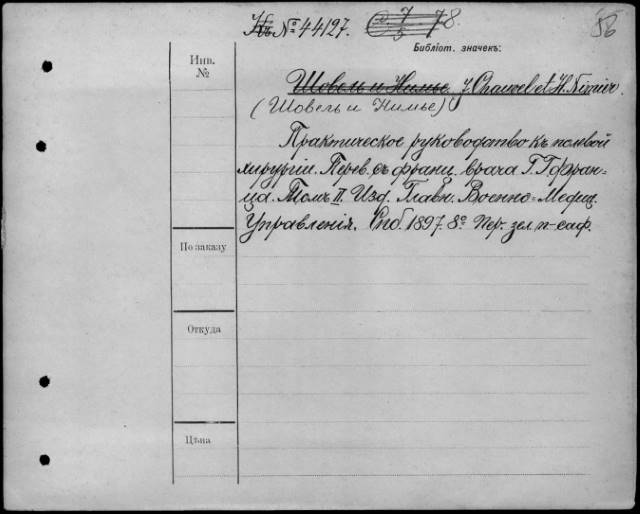 Къ № 44127. 78.
Библіот. значекъ:
Инв.
№
Шовель и Нимье J. Chauvel et H. Nimier.
(Шовель и Нимье)
Практическое руководство къ полевой
хирургіи. Перев. съ франц. врача Г. Гофран-
ца. Томъ II. Изд. Главн. Военно-Медиц.
Управленія. Спб. 1897. 8º Пер. зел. п-саф.
По заказу
Откуда
Цѣна